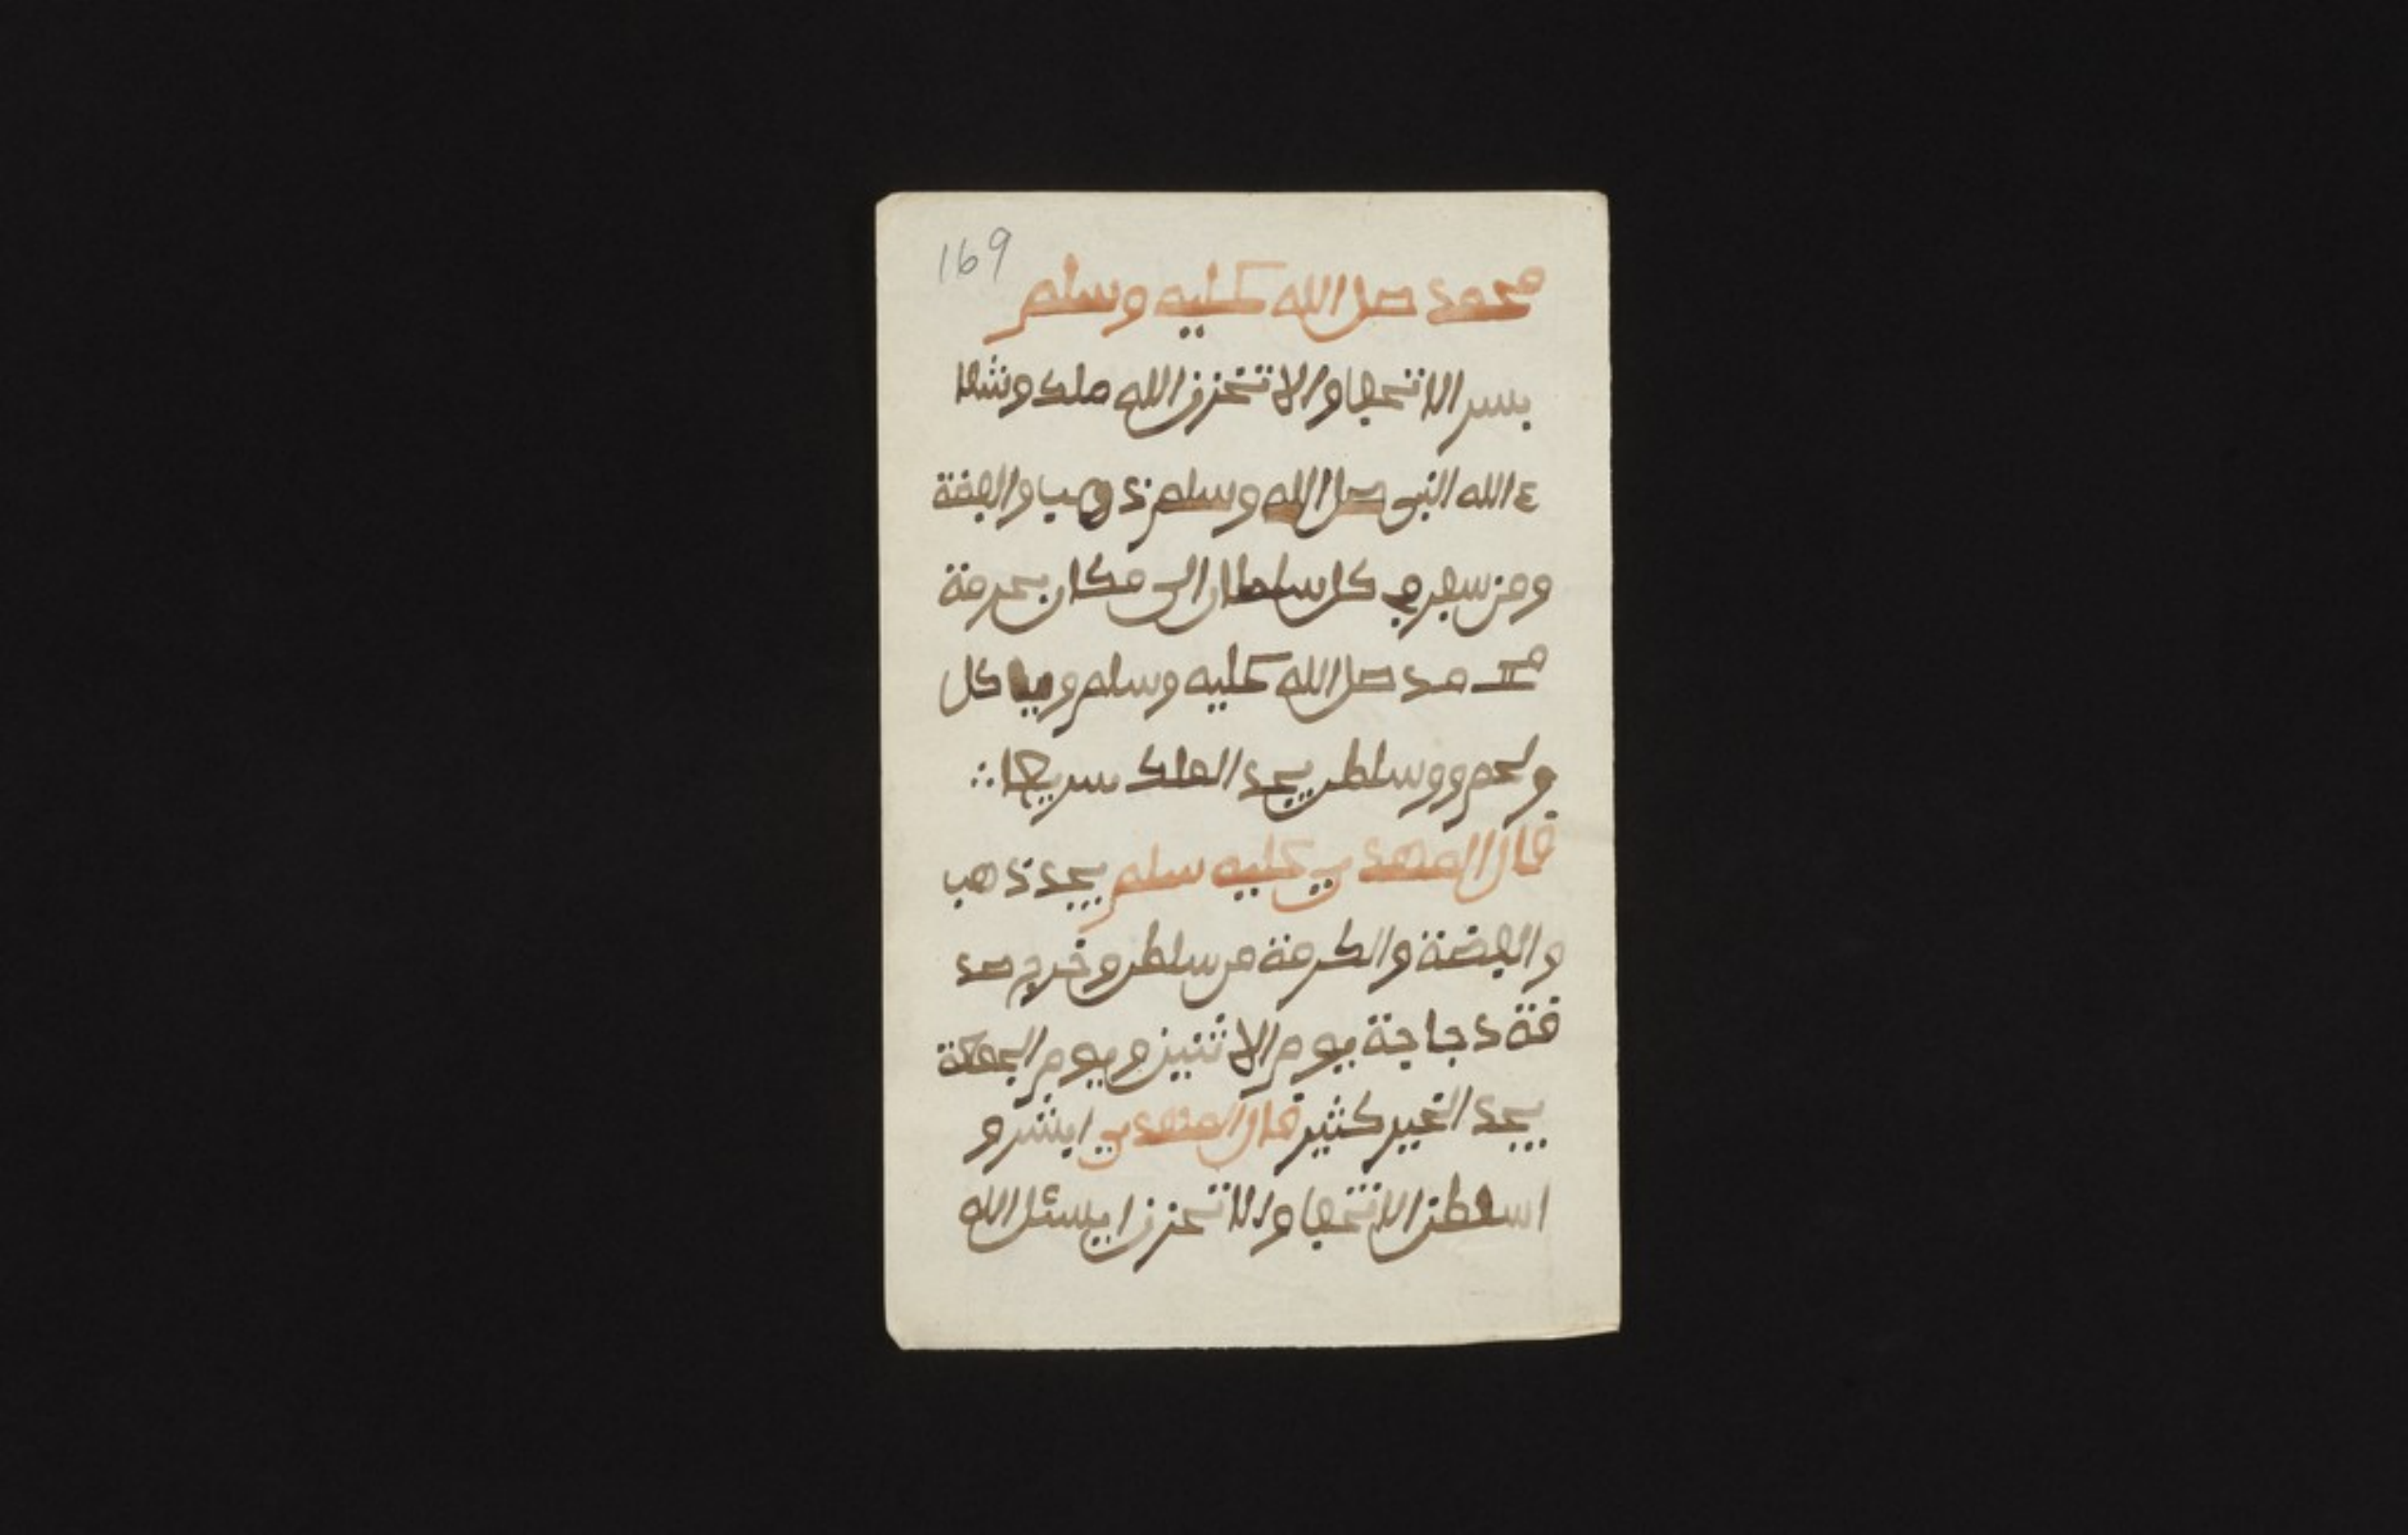 169
محمد صل الله عليه وسلم
بسر الا تخجا والا تخزز الله ملك وشا
ع الله النبي صل الله وسلم ذهب والفضة
ومن سفر في كل سلطان الى مكان بحرمة
محمد صل الله عليه وسلم ويا كل
ولحم ووسلطن يجد الملك سريعا
قال المهدي عليه سلم يجد ذهب
والفضة والكرمة من سلطن وخرج صد
قة دجاجة يوم الاثنين ويوم الجمعة
يجد الخير كثير قال المهدي ابشر و
اسلطن الا تخف والا تحزن ايسئل الله